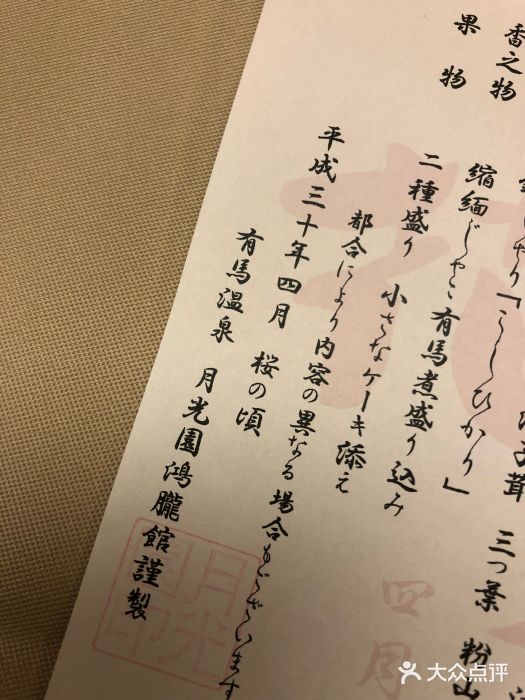 三つ葉 粉山
「こしひかり」
香之物 縮緬じゃこ有馬煮盛り込み
果物 二種盛り 小さなケーキ添え
都合により内容の異なる場合もございます
平成三十年四月 桜の頃
有馬温泉 月光園鴻朧館謹製
四月
月光園印
大众点评